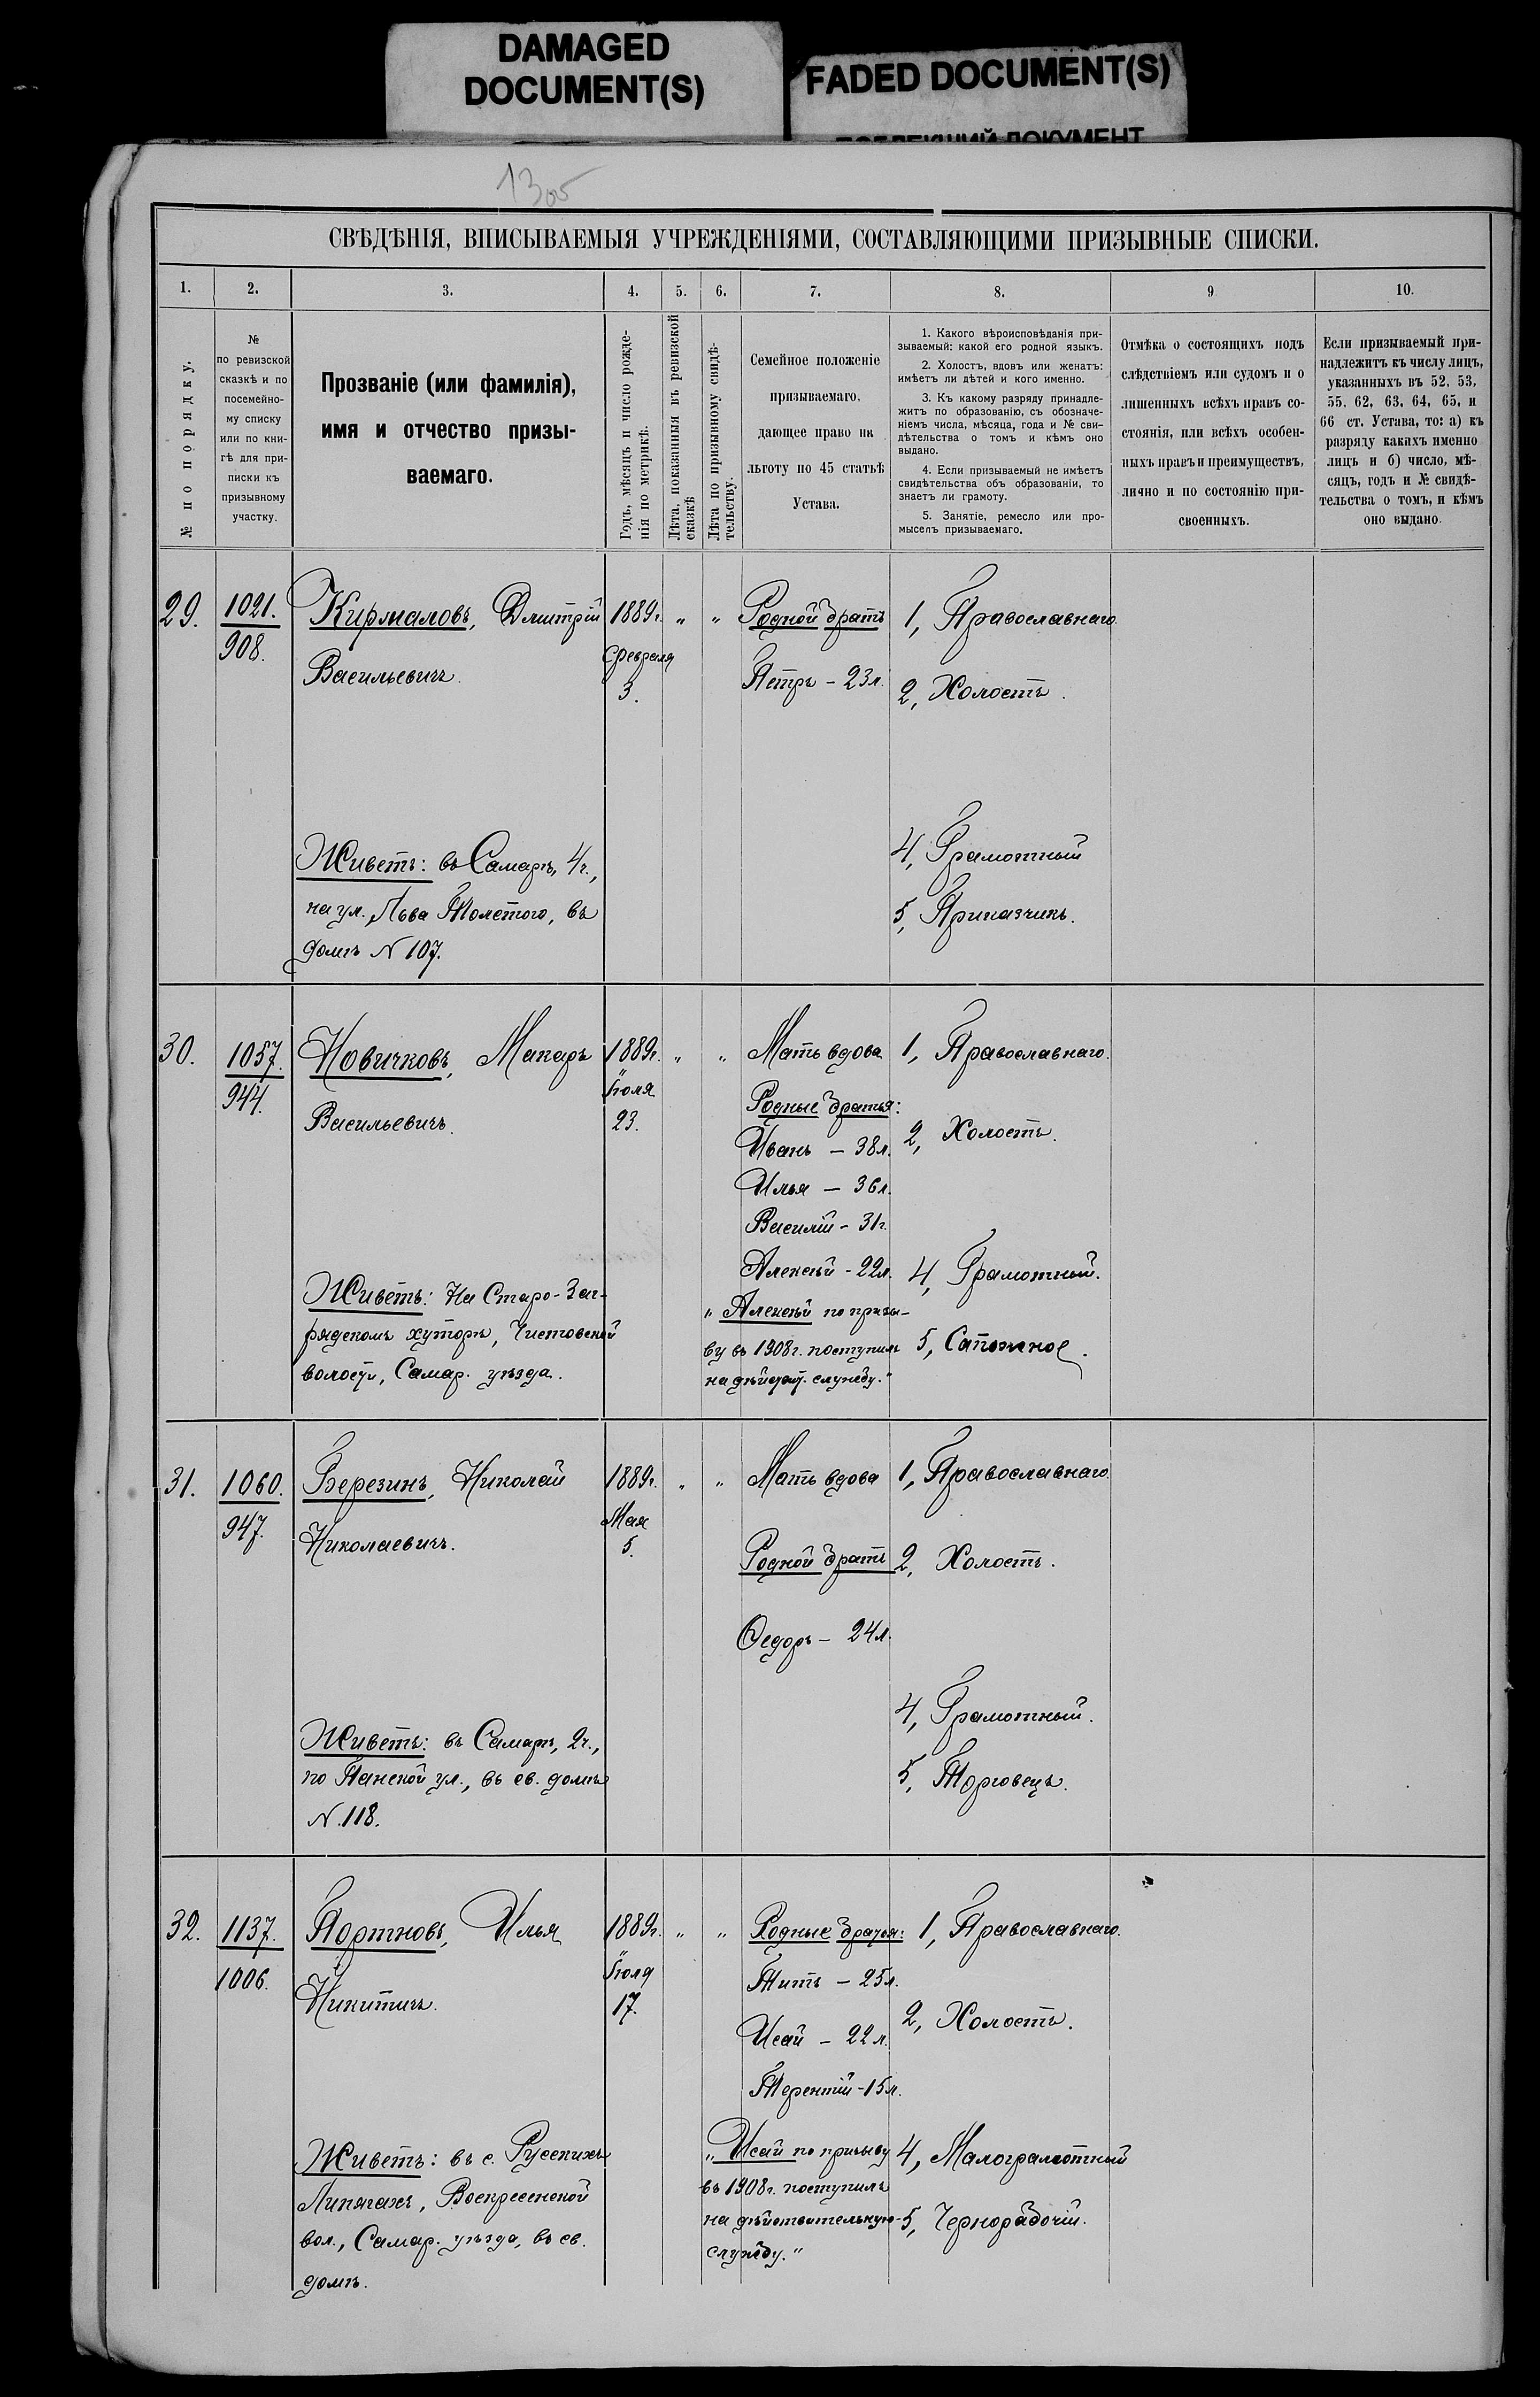 DAMAGED
DOCUMENT(S)
FADED DOCUMENT(S)
1305
СВѢДѢНІЯ, ВПИСЫВАЕМЫЯ УЧРЕЖДЕНІЯМИ, СОСТАВЛЯЮЩИМИ ПРИЗЫВНЫЕ СПИСКИ.
1. 2. 3. 4. 5. 6. 7. 8. 9 10.
№ по порядку.
№
по ревизской
сказкѣ и по
посемейно-
му списку
или по кни-
гѣ для при-
писки къ
призывному
участку.
Прозваніе (или фамилія),
имя и отчество призы-
ваемаго.
Годъ, мѣсяцъ и число рожде-
нія по метрикѣ.
Лѣта, показанныя въ ревизской
сказкѣ
Лѣта по призывному свидѣ-
тельству.
Семейное положеніе
призываемаго,
дающее право на
льготу по 45 статьѣ
Устава.
1. Какого вѣроисповѣданія при-
зываемый: какой его родной языкъ.
2. Холостъ, вдовъ или женатъ:
имѣетъ ли дѣтей и кого именно.
3. Къ какому разряду принадле-
житъ по образованію, съ обозначе-
ніемъ числа, мѣсяца, года и № сви-
дѣтельства о томъ и кѣмъ оно
выдано.
4. Если призываемый не имѣетъ
свидѣтельства объ образованіи, то
знаетъ ли грамоту.
5. Занятіе, ремесло или про-
мыселъ призываемаго.
Отмѣка о состоящихъ подъ
слѣдствіемъ или судомъ и о
лишенныхъ всѣхъ правъ со-
стоянія, или всѣхъ особен-
ныхъ правъ и преимуществъ,
лично и по состоянію при-
своенныхъ.
Если призываемый при-
надлежитъ къ числу лицъ,
указанныхъ въ 52, 53,
55, 62, 63, 64, 65, и
66 ст. Устава, то: а) къ
разряду какихъ именно
лицъ и б) число, мѣ-
сяцъ, годъ и № свидѣ-
тельства о томъ, и кѣмъ
оно выдано.
29.
1021.
908.
Кирмаловъ, Дмитрій
Васильевичъ.
Живетъ: въ Самарѣ, 4 ч.,
на ул. Льва Толстого, въ
домѣ N 107.
1889 г.
Февраля
3.
" "
Родной братъ
Петръ - 23 л.
1, Православнаго
2, Холостъ.
4, Грамотный
5, Приказчикъ.
30.
1057.
944.
Новичковъ, Макаръ
Васильевичъ.
Живетъ: На Старо-Заг-
рядскомъ хуторѣ, Чистовской
волости, Самар. уѣзда.
1889 г.
Іюля
23.
" "
Мать вдова
Родные братья:
Иванъ - 38 л.
Илья - 36 л.
Василій - 31 г.
Алексѣй - 22 л.
" Алексѣй по призы-
ву въ 1908 г. поступилъ
на дѣйст. службу."
1, Православнаго.
2, Холостъ.
4, Грамотный.
5, Сапожное.
31.
1060.
947.
Березинъ, Николай
Николаевичъ.
Живетъ: въ Самарѣ, 2 ч.,
по Панской ул., въ св. домѣ
N. 118.
1889 г.
Мая
5.
" "
Мать вдова
Родной братъ
Ѳедоръ - 24 л.
1, Православнаго.
2, Холостъ.
4, Грамотный.
5, Торговецъ.
32.
1137.
1006.
Портновъ, Илья
Никитичъ.
Живетъ: въ с. Русскихъ
Липягахъ, Воскресенской
вол., Самар. уѣзда, въ св.
домѣ.
1889 г.
Іюля
17.
" "
Родные братья:
Титъ - 25 л.
Исай - 22 л.
Терентій - 15 л.
" Исай по призыву
въ 1908 г. поступилъ
на дѣйствительную
службу."
1, Православнаго.
2, Холостъ.
4, Малограмотный
5, Чернорабочій.